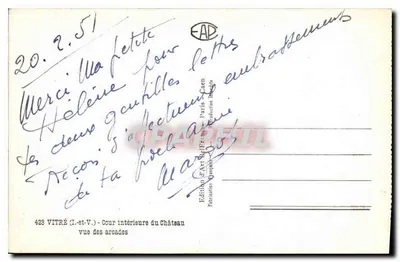 20.2.51
EAD
Merci Ma petite
Hélène pour
tes deux gentilles lettres
Reçois d'affectueux embrassements
de ta
Edition d'Art Paris Caen
423 VITRÉ (I.-et-V.) - Cour intérieure du Château
vue des arcades